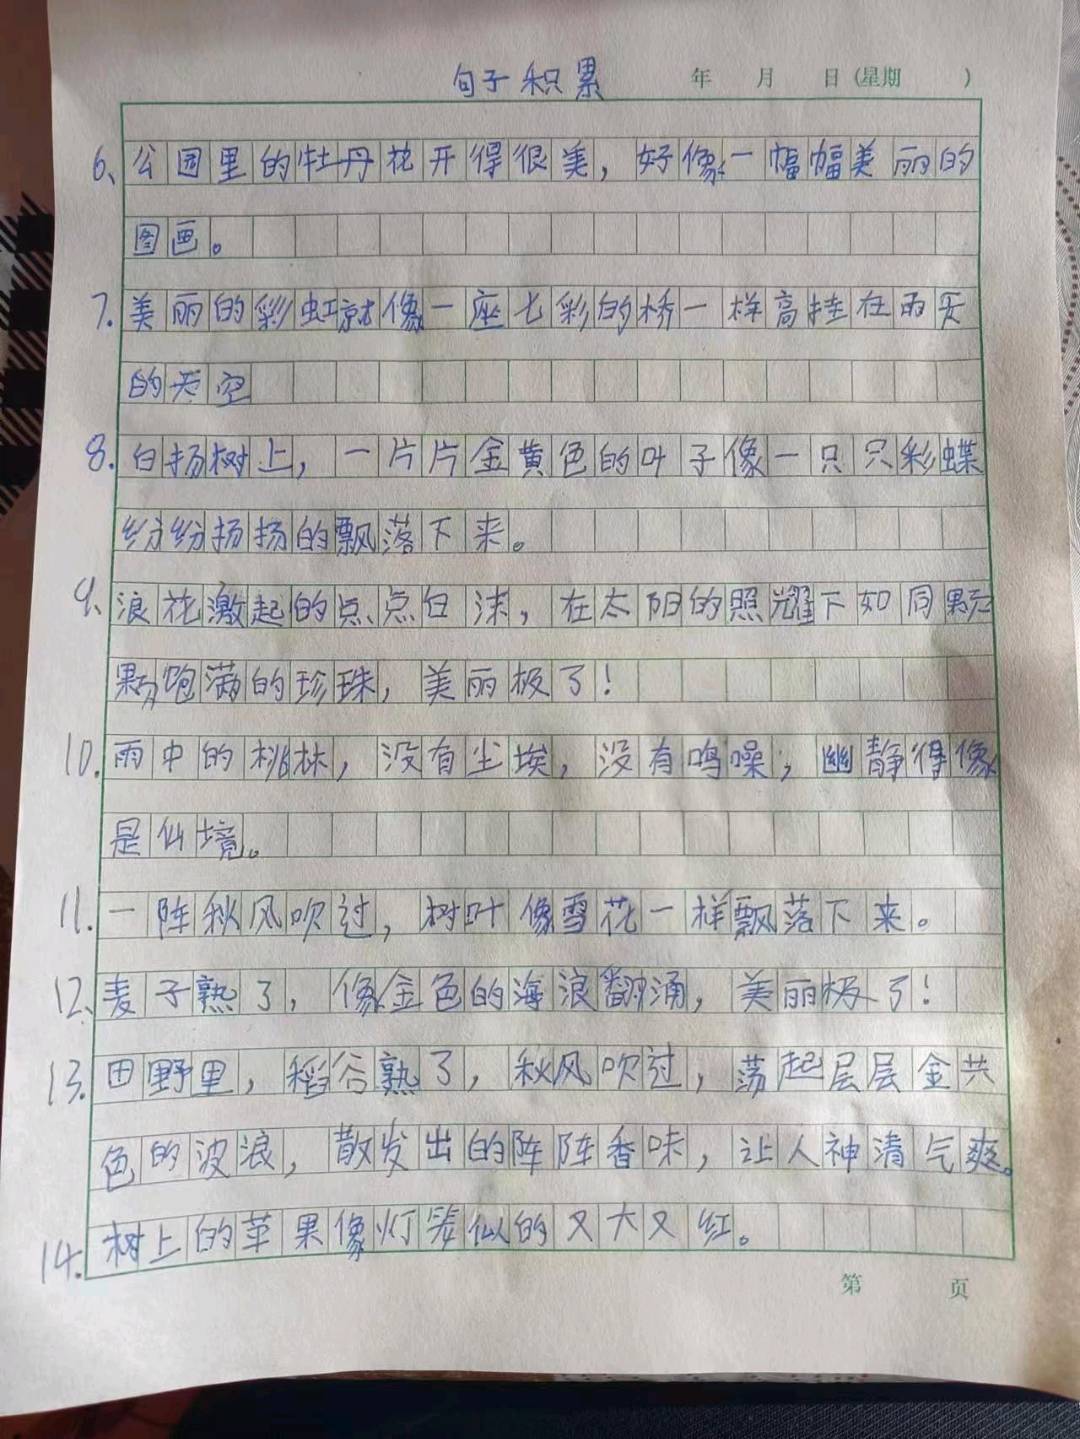 句子积累 年 月 日(星期 )
6、公园里的牡丹花开得很美，好像一幅幅美丽的
图画。
7.美丽的彩虹就像一座七彩的桥一样高挂在雨天
的天空
8.白扬树上，一片片金黄色的叶子像一只只彩蝶
纷纷扬扬的飘落下来。
9、浪花激起的点点白沫，在太阳的照耀下如同颗
颗饱满的珍珠，美丽极了！
10.雨中的桃林，没有尘埃，没有鸣噪；幽静得像
是仙境。
11.一阵秋风吹过，树叶像雪花一样飘落下来。
12、麦子熟了，像金色的海浪翻涌，美丽极了！
13.田野里，稻谷熟了，秋风吹过，荡起层层金共
色的波浪，散发出的阵阵香味，让人神清气爽。
14.树上的苹果像灯笼似的又大又红。
第 页